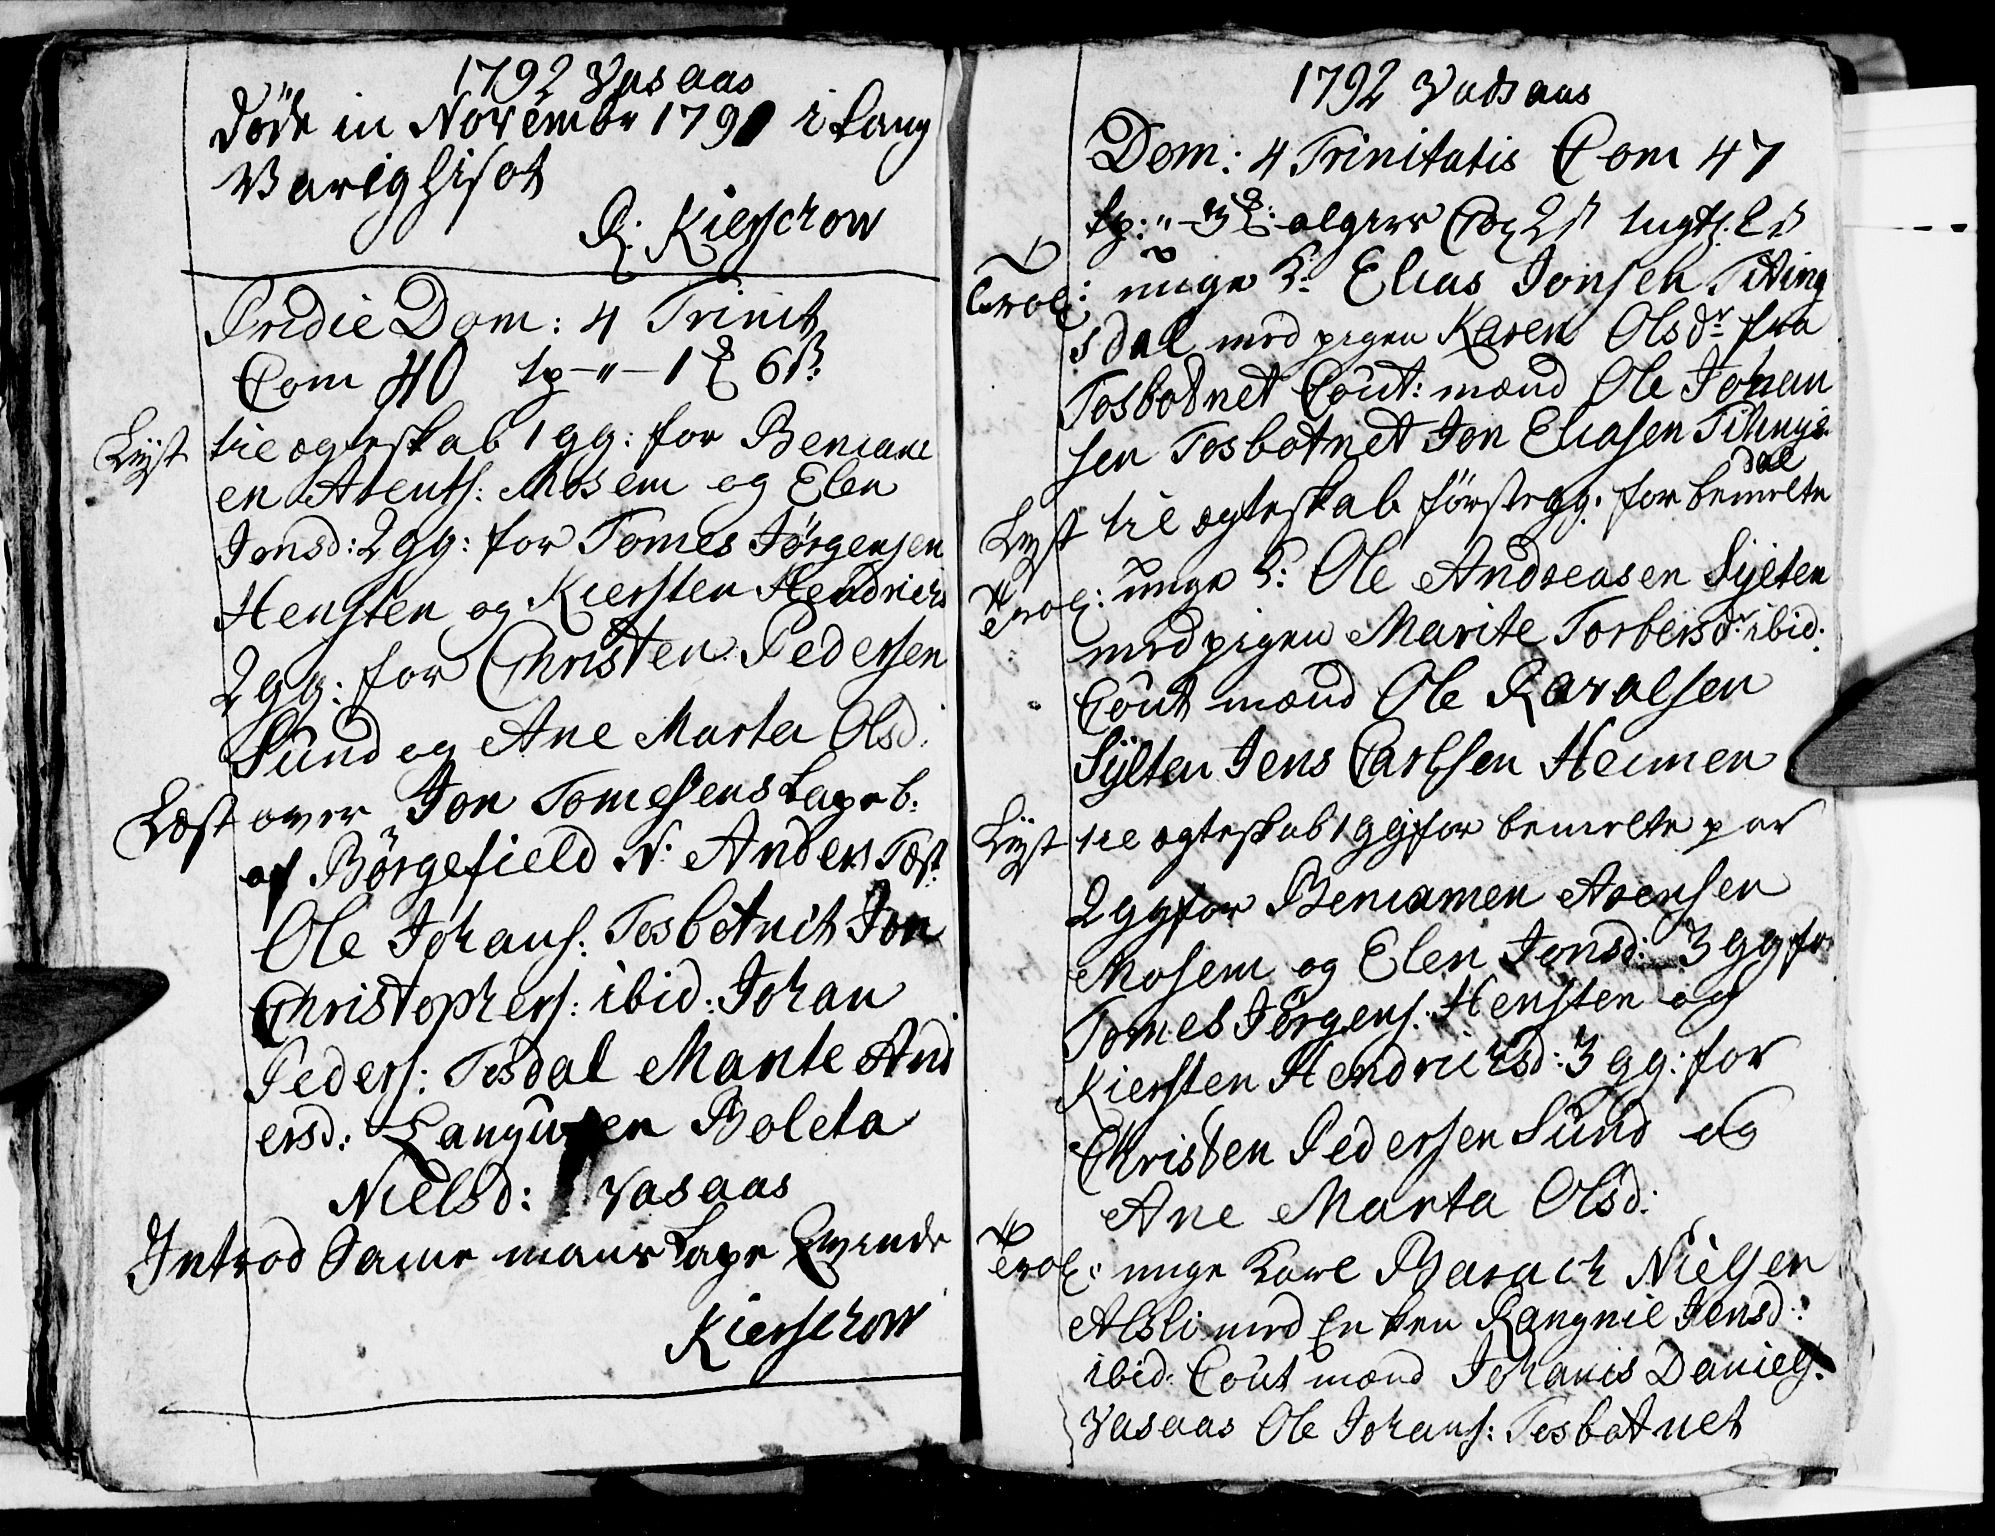 1792 Vasaas
døde in Novembr 1791 i lang
Varig hisot
Kierschow
Pridie Dom: 4 Trinit
Com 40 tp - " - 1 6 ß:
Lyst til ægteskab 1 gg: for Beniam
en Arents: Mosem og Elen
Jonsd: 2 gg: for Tomes Jørgensen
Hensten og Kiersten Hendrichs
2 gg: for Christen Pedersen
Sund og Ane Marta Olsd:
Læst over Jon Tomesens Lapeb:
af Børgefield N: Anders Tæst:
Ole Johans: Tosbotnet Jon
Christophers: ibid: Johan
Peders: Tosdal Marite And
ersd: Boleta
Nielsd: Vasaas
Introd Samme mans Lape
Kierschow
1792 Vadsaas
Dom: 4 Trinitatis Com 47
tp: " - 3 2 ß 2 ß
Trol: unge K: Elias Jonsen Titing
sdal med pigen Karen Olsdr fra
Tosbotnet Cout: mænd Ole Johan
sen Tosbotnet Jon Eliasen Titings
dal
Lyst til ægteskab første gg: for bemelte
Trol: unge K: Ole Andreasen Sylten
med pigen Marite Torbersdr ibid:
Cout mænd Ole Raralsen
Sylten Jens Carlsen Heimen
Lyst til ægteskab 1 gg for bemelte par
2 gg for Beniamen Arensen
Mosem og Elen Jonsd: 3 gg for
Tomes Jørgens: Hensten og
Kiersten Hendrichsd: 3 gg: for
Christen Pedersen Sund og
Ane Marta Olsd:
Trol: unge Karl Barach Nielsen
Alsli med Enken Rangnil Jensd:
ibid: Cout mænd Johanis Daniels:
Vasaas Ole Johans: Tosbotnet